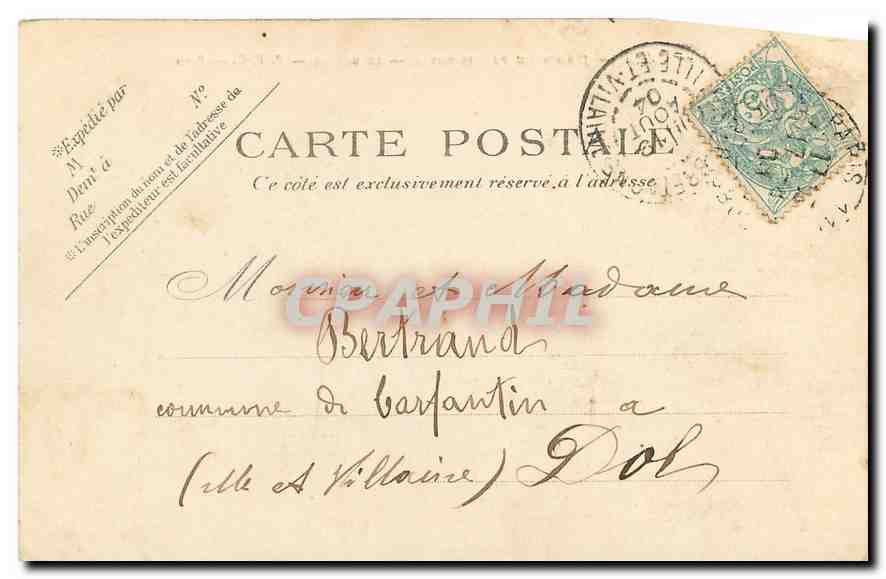 ※Expédié par
M
Demt à
Rue
N°
※L'inscription du nom et de l'adresse de
l'expéditeur est facultative
CARTE POSTALE
Ce côté est exclusivement réservé à l'adresse
ILLE-ET-VILAINE
AOUT
04
PARIS
17
Monsieur et Madame
CPAPHIL
Bertrand
commune de Carfantin a
(ille et Villaine) Dol